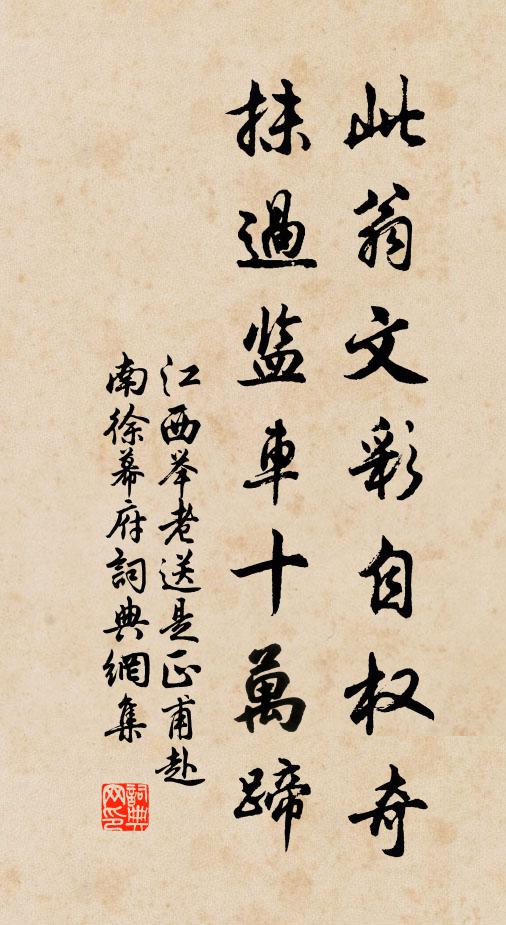 此翁文彩自权奇
抹過监車十萬蹄
江西举老送是正甫赴
南徐幕府詞典網集
詞典网印